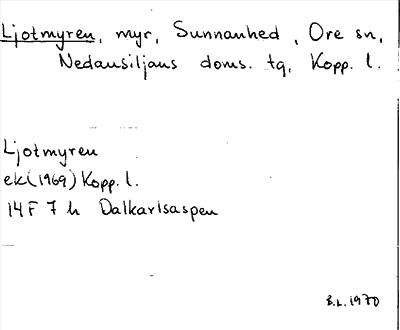 Ljotmyren, myr, Sunnanhed, Ore sn,
Nedansiljans doms. tg, Kopp. l.
Ljotmyren
ek (1969) Kopp. l.
14F 7h Dalkarlsaspen
B.L. 1970